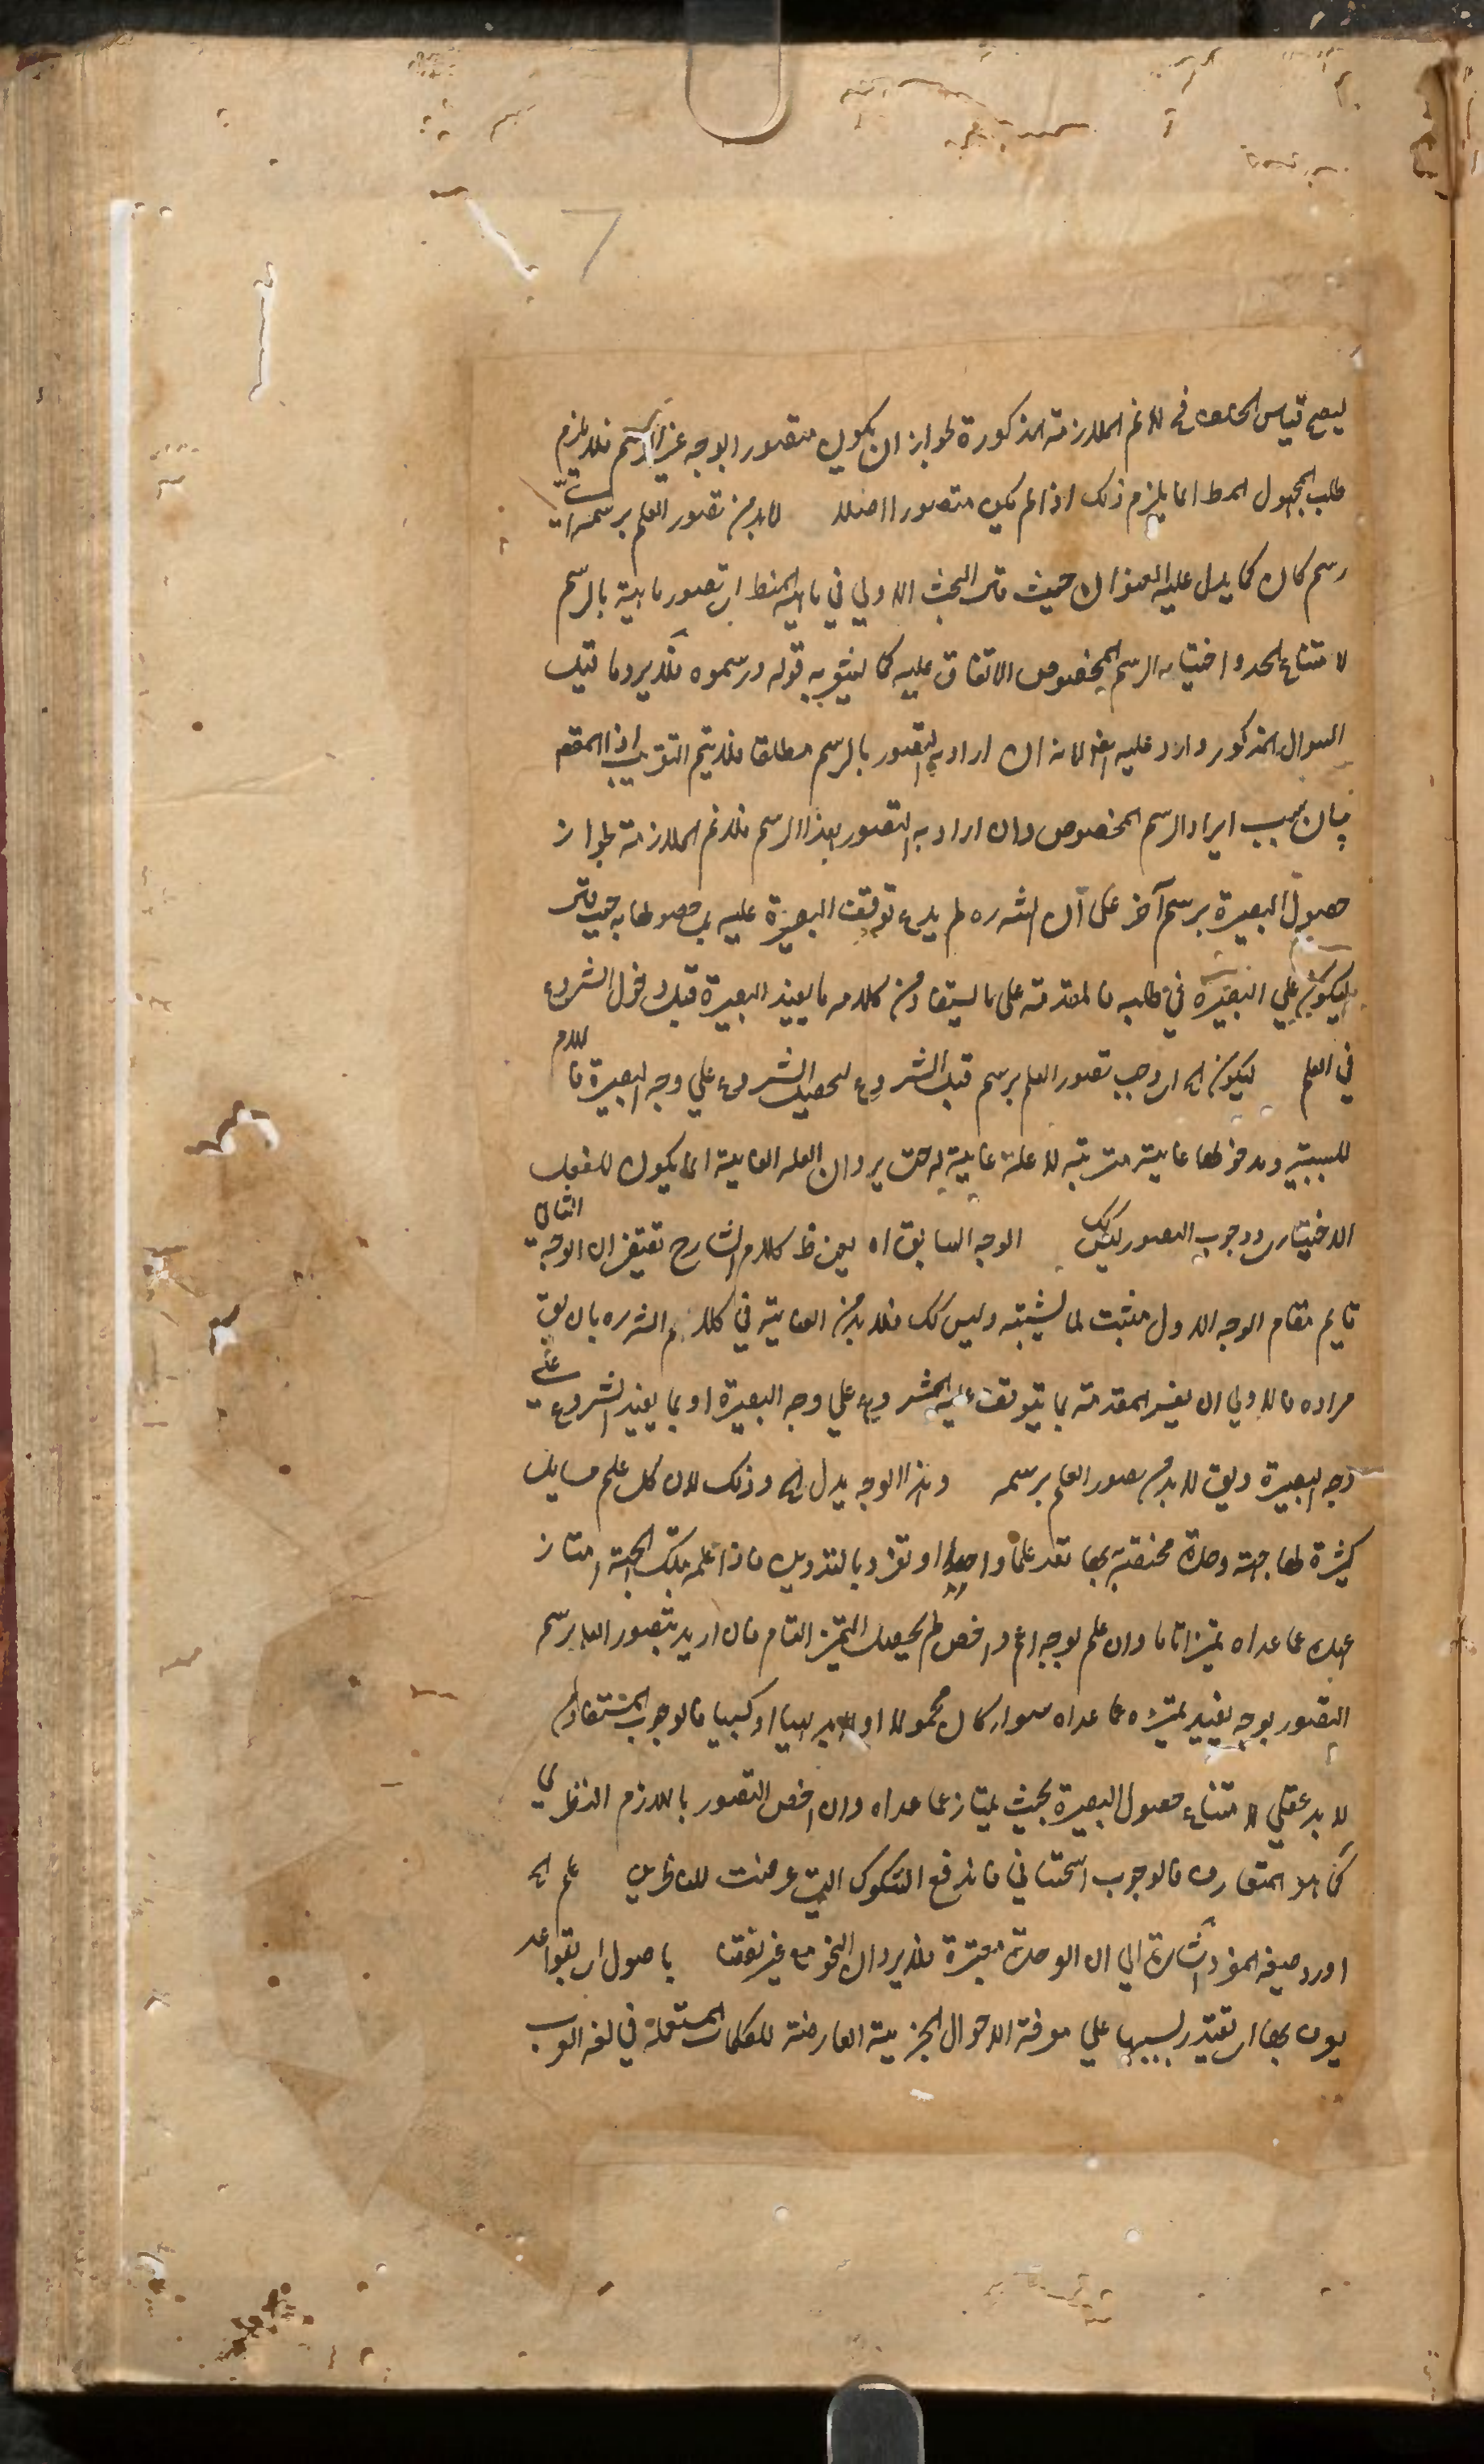 ليصح قياس الخلف فى فلانم الملازمة المذكورة لجواز ان يكون متصورا بوجه غير الرسم فلا يلزم
طلب المجهول المط انما يلزم ذلك اذا لم يكن متصورا اصلا لابد من تصور العلم برسمه اى
رسم كان كما يدل عليه العنوان حيث قال البحث الاولي في ماهية المنط اى تصور ماهية بالرسم
لامتناع الحد واختيار الرسم المخصوص الاتفاق عليه كما يشعر به قوله ورسموه فتدبر وما قيل
السوال المذكور وارد عليه ايضا لانه ان اراد به التصور بالرسم مطلقا فلا يتم التقريب اذ المقصم
بيان سبب ايراد الرسم المخصوص وان اراد به التصور بهذا الرسم فلانم الملازمة لجواز
حصول البصيرة برسم آخر على ان الش ره لم يدع توقف البصيرة عليه بل حصولها به حيث قال
ليكون علي البصيرة في طلبه فالمقدمة على ما يستفاد من كلامه ما يفيد البصيرة قبل دخول الشروع
في العلم ليكون اه اى وجب تصور العلم برسم قبل الشروع ليحصل الشروع علي وجه البصيرة فاللام
للسببية ومدخولها غاية مترتبة لا علة غائية له حتى يرد ان العلة الغائية انما يكون للفعل
الاختيارى ووجوب التصور ليس كك الوجه السابق اه يعنى ظ كلام الشارح تقتضى ان الوجه الثانى
قايم مقام الوجه الاول مثبت لما يثبته وليس كك فلابد من العناية في كلام الش ره بان يق
مراده فالاولي ان يفسر المقدمة بما يتوقف عليه الشروع علي وجه البصيرة او بما يفيد الشروع على
وجه البصيرة ويق لابد من تصور العلم برسمه وهذا الوجه يدل اه وذلك لان كل علم مسايل
كثيرة لها جهة وحدة مختصة بها تعد علما واحدا او تفرد بالتدوين فاذا علمه بتلك الجهة امتاز
عنده عما عداه تميزا تاما وان علم بوجه اعم واخص لم يحصل التميز التام فان اريد بتصور العلم برسم
التصور بوجه يفيد تميزه عما عداه سواء كان محمولا اولا بديهيا او كسبيا فالوجوب المستفاد من
لابد عقلي لامتناع حصول البصيرة بحيث يمتاز عما عداه وان اخص التصور باللازم النظرى
كما هو المتعارف فالوجوب استحسانى فاندفع الشكوك التي عرضت للناظرين علم اه
اورد صيغة المفرد اشارة الي ان الوحدة معتبرة فلا يرد ان النحو مع غيره نقضا باصول اى بقواعد
يعرف بها اى يقتدر بسببها علي معرفة الاحوال الجزئية العارضة للكلمات المستعملة في لغة العرب